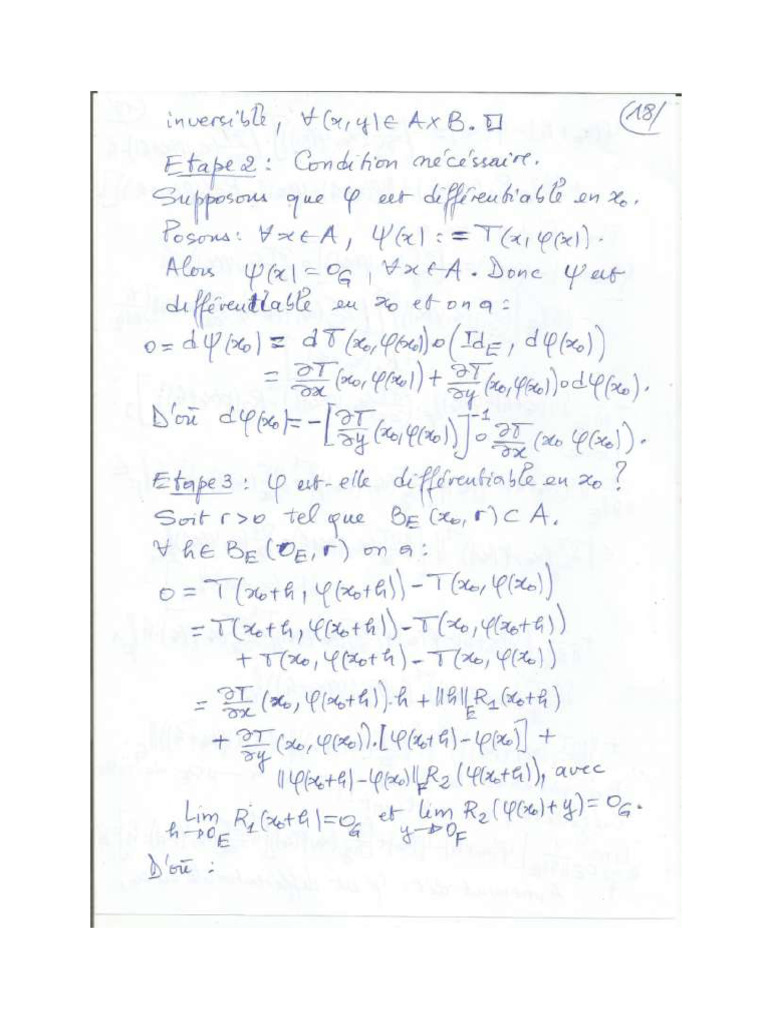 18/
inversible, ∀(x,y) ∈ A×B. □
Etape 2 : Condition nécéssaire.
Supposons que φ est différentiable en x₀.
Posons: ∀x∈A, ψ(x) := T(x, φ(x)).
Alors ψ(x) = 0_G, ∀x∈A. Donc ψ est
différentiable en x₀ et on a :
0 = dψ(x₀) = dT(x₀,φ(x₀)) ∘ (Id_E, dφ(x₀))
= ∂T/∂x (x₀, φ(x₀)) + ∂T/∂y (x₀,φ(x₀)) ∘ dφ(x₀).
D'où dφ(x₀) = -[∂T/∂y (x₀,φ(x₀))]⁻¹ ∘ ∂T/∂x (x₀ φ(x₀)).
Etape 3 : φ est-elle différentiable en x₀ ?
Soit r>0 tel que B_E(x₀, r) ⊂ A.
∀h∈ B_E(0_E, r) on a :
0 = T(x₀+h, φ(x₀+h)) - T(x₀, φ(x₀))
= T(x₀+h, φ(x₀+h)) - T(x₀, φ(x₀+h))
+ T(x₀, φ(x₀+h) - T(x₀, φ(x₀))
= ∂T/∂x (x₀, φ(x₀+h)).h + ||h||_E R₁(x₀+h)
+ ∂T/∂y (x₀, φ(x₀)).[φ(x₀+h) - φ(x₀)] +
||φ(x₀+h) - φ(x₀)||_F R₂(φ(x₀+h)), avec
Lim_{h→0_E} R₁(x₀+h) = 0_G et lim_{y→0_F} R₂(φ(x₀)+y) = 0_G.
D'où :